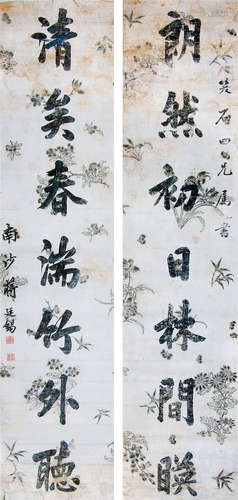 笑石四兄属書
朗然初日林間暎
清矣春湍竹外聽
南沙蔣廷錫